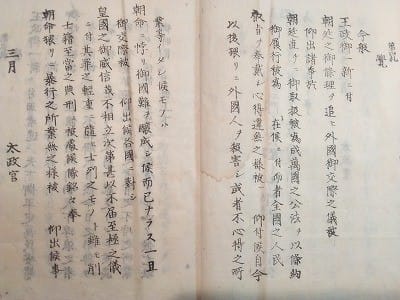 覺
今般
王政御一新ニ付
朝廷之御條理ヲ追ヒ外國御交際之儀被
仰出諸事於
朝廷直チニ御取扱被為成萬國之公法ヲ以條約
御履行被為 在候ニ付而者全國之人民
叡旨ヲ奉戴シ心得違無之様被 仰付候自今
以後猥リニ外國人ヲ殺害シ或者不心得之所
業等イタシ候モノハ
朝命ニ悖リ御國難ヲ醸成シ候而已ナラス一旦
御交際被 仰出候各國ニ對シ
皇國之御威信茂不相立次第甚以不届至極之儀
ニ付其罪之軽重ニ隨ヒ士列之モノト雖モ削
士籍至當之典刑ニ被處候條銘々奉
朝命猥リニ暴行之所業無之様被 仰出候事
三月 太政官